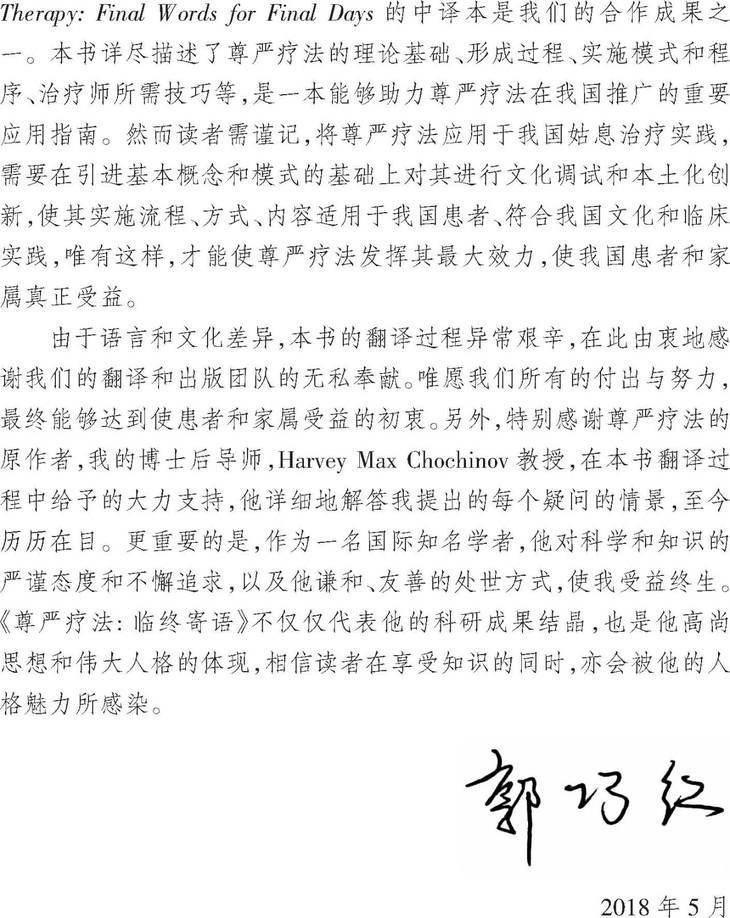 Therapy: Final Words for Final Days 的中译本是我们的合作成果之
一。本书详尽描述了尊严疗法的理论基础、形成过程、实施模式和程
序、治疗师所需技巧等,是一本能够助力尊严疗法在我国推广的重要
应用指南。然而读者需谨记,将尊严疗法应用于我国姑息治疗实践,
需要在引进基本概念和模式的基础上对其进行文化调试和本土化创
新,使其实施流程、方式、内容适用于我国患者、符合我国文化和临床
实践,唯有这样,才能使尊严疗法发挥其最大效力,使我国患者和家
属真正受益。
由于语言和文化差异,本书的翻译过程异常艰辛,在此由衷地感
谢我们的翻译和出版团队的无私奉献。唯愿我们所有的付出与努力,
最终能够达到使患者和家属受益的初衷。另外,特别感谢尊严疗法的
原作者,我的博士后导师,Harvey Max Chochinov 教授,在本书翻译过
程中给予的大力支持,他详细地解答我提出的每个疑问的情景,至今
历历在目。更重要的是,作为一名国际知名学者,他对科学和知识的
严谨态度和不懈追求,以及他谦和、友善的处世方式,使我受益终生。
《尊严疗法: 临终寄语》不仅仅代表他的科研成果结晶,也是他高尚
思想和伟大人格的体现,相信读者在享受知识的同时,亦会被他的人
格魅力所感染。
郭巧红
2018 年 5 月